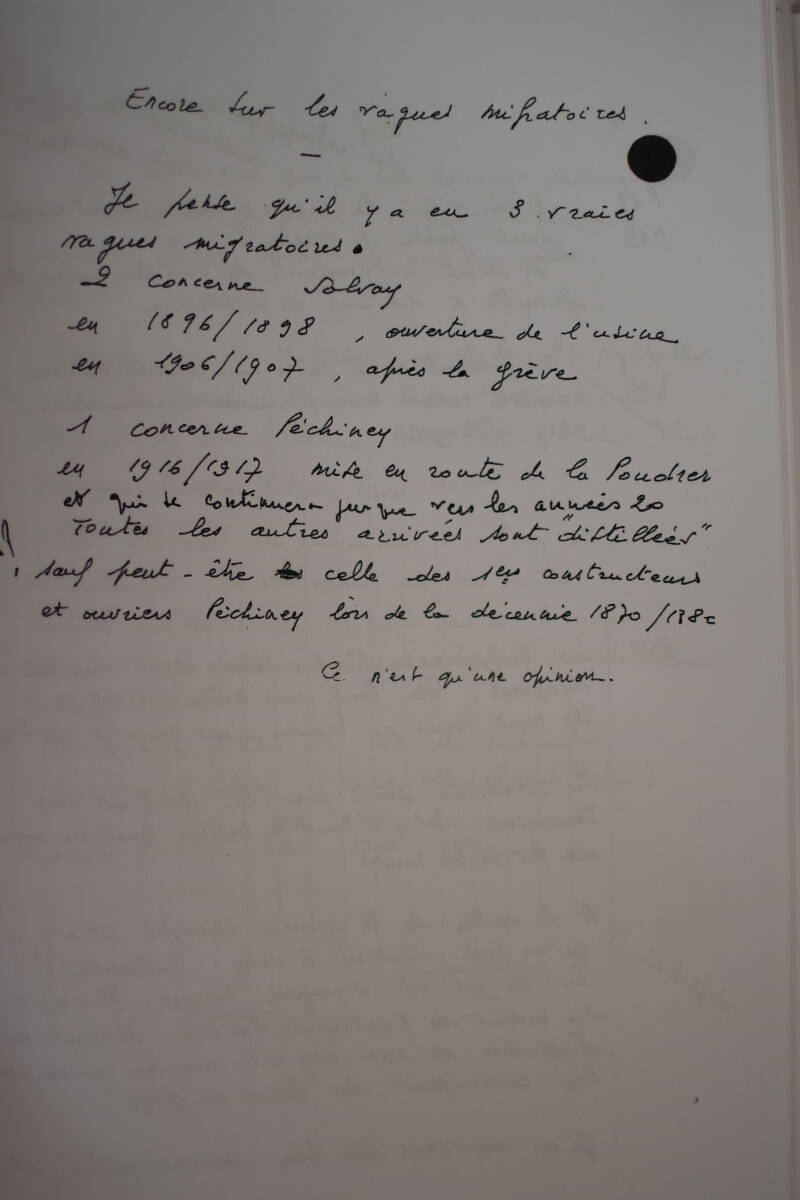 Encore sur les vagues migratoires.
—
Je pense qu'il y a eu 3 vraies
vagues migratoires.
2 concerne Solvay
en 1896/1898, ouverture de l'usine
en 1906/1907, après la grève
1 concerne Péchiney
en 1916/1917 mise en route de la Poudrer
et qui se continuera jusque vers les années 20
Toutes les autres arrivées sont "distillées"
sauf peut-être celle des 1ers constructeurs
et ouvriers Péchiney lors de la décennie 1870/188
Ce n'est qu'une opinion.